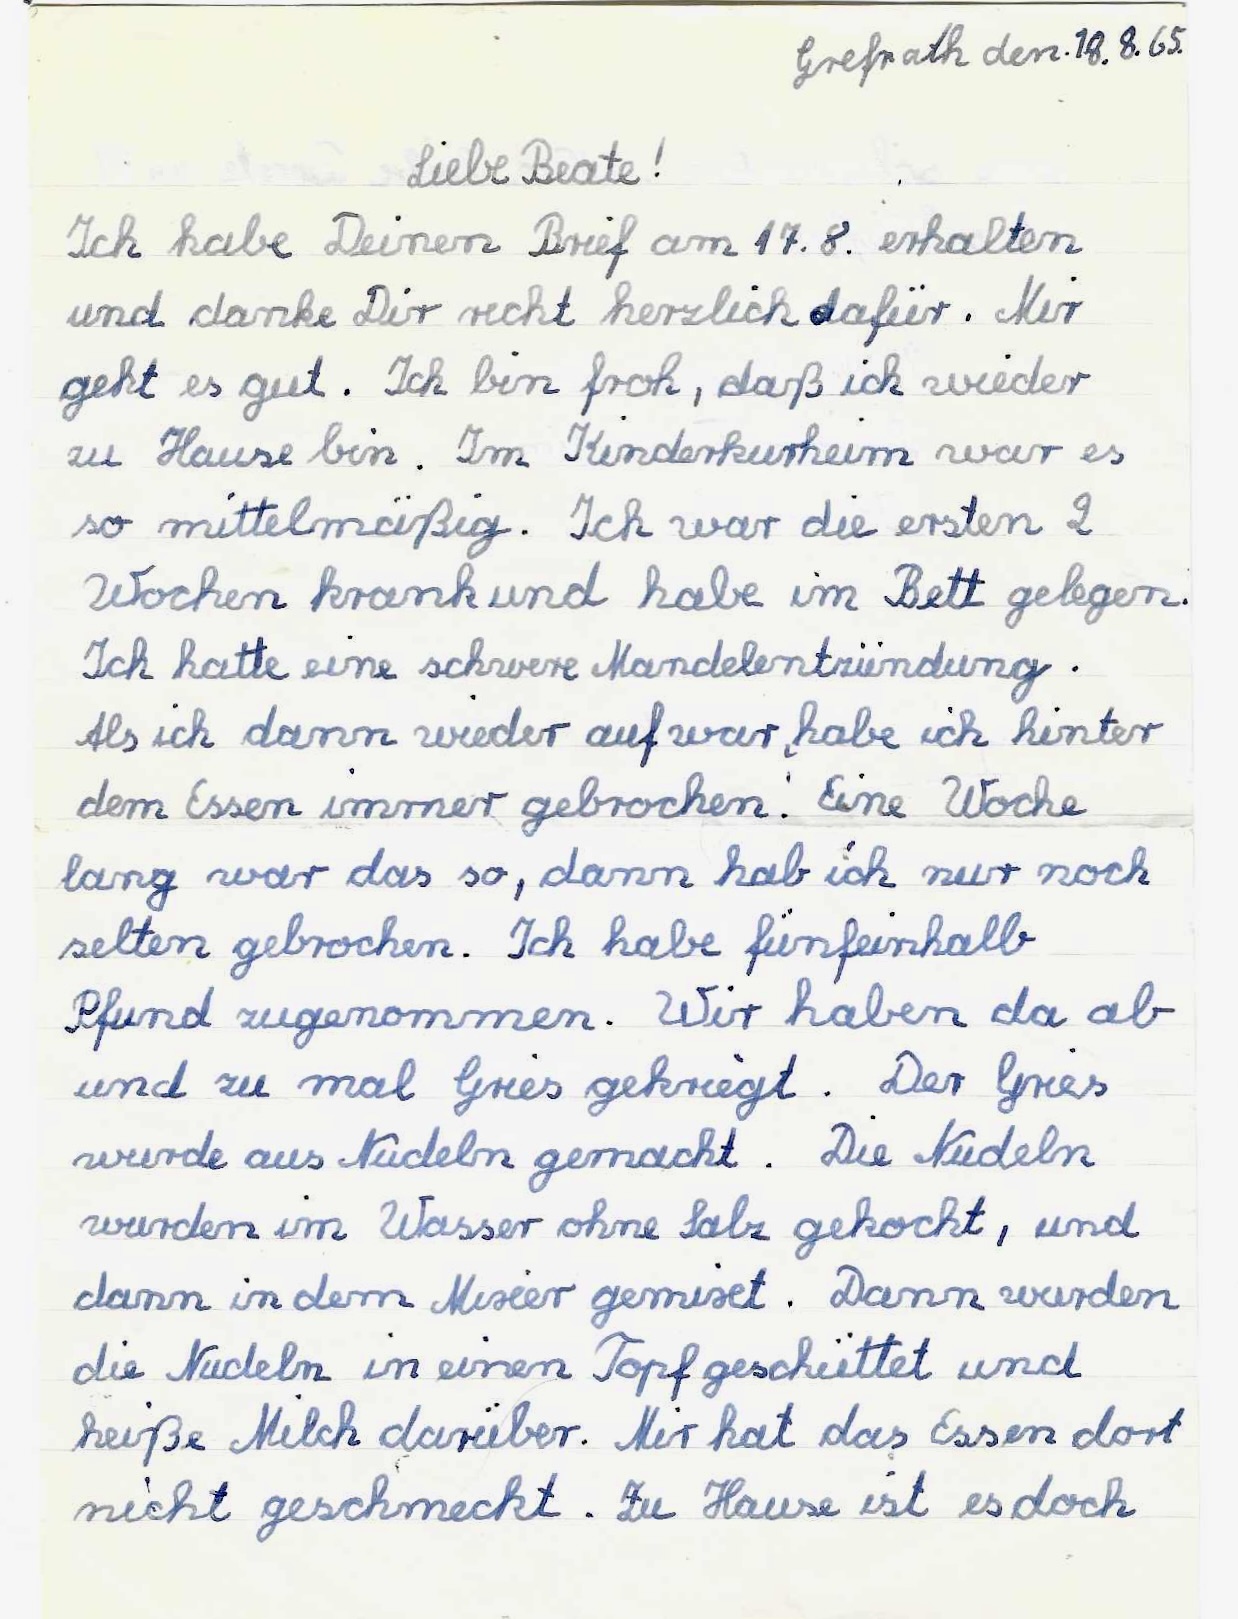 Grefrath den 18. 8. 65.
Liebe Beate!
Ich habe Deinen Brief am 17. 8. erhalten
und danke Dir recht herzlich dafür. Mir
geht es gut. Ich bin froh, daß ich wieder
zu Hause bin. Im Kinderkurheim war es
so mittelmäßig. Ich war die ersten 2
Wochen krank und habe im Bett gelegen.
Ich hatte eine schwere Mandelentzündung.
Als ich dann wieder auf war, habe ich hinter
dem Essen immer gebrochen. Eine Woche
lang war das so, dann hab ich nur noch
selten gebrochen. Ich habe fünfeinhalb
Pfund zugenommen. Wir haben da ab
und zu mal Gries gekriegt. Der Gries
wurde aus Nudeln gemacht. Die Nudeln
wurden im Wasser ohne Salz gekocht, und
dann in dem Mixer gemixt. Dann wurden
die Nudeln in einen Topf geschüttet und
heiße Milch darüber. Mir hat das Essen dort
nicht geschmeckt. Zu Hause ist es doch